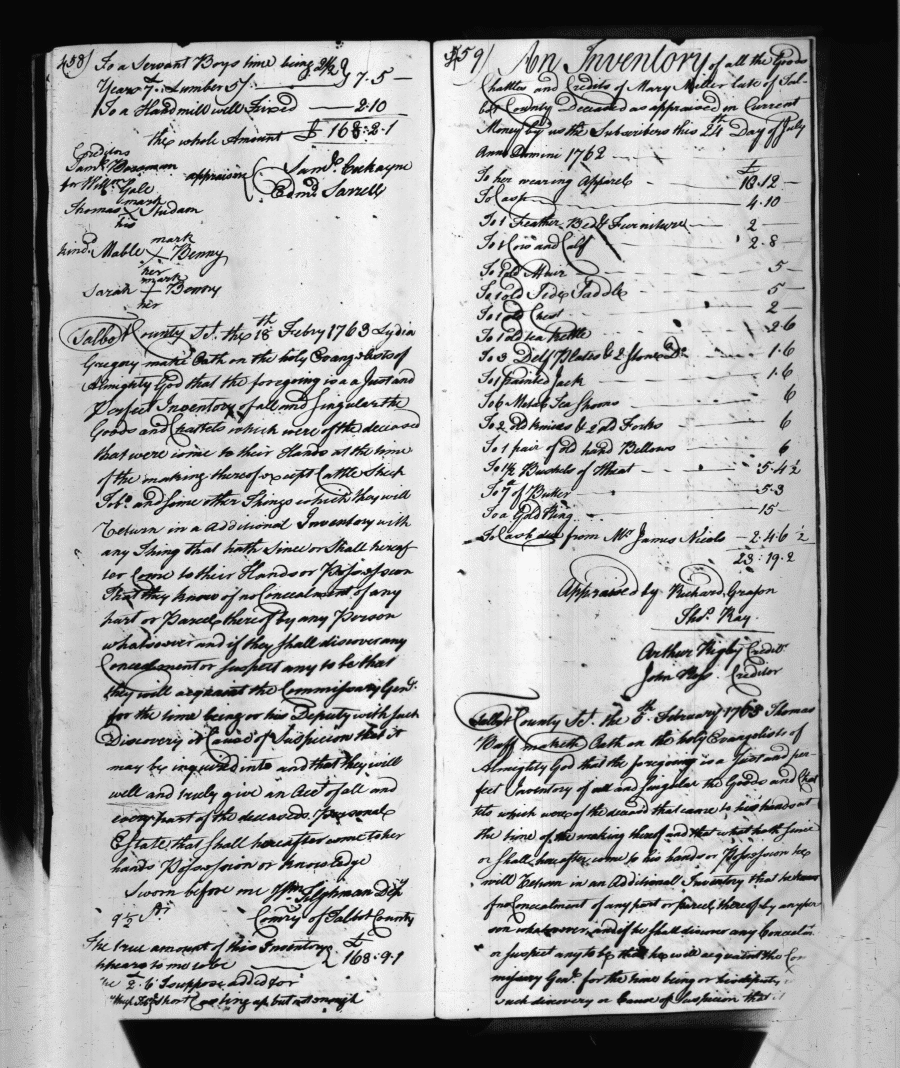 458)
To a Servant Boys time being 2 1/2
Years & Lumber 5/. } 7.5 —
To a Handmill well Fixed — 2.10
the whole Amount £ 168.2.1
Creditors
Saml. Bowman
for Willm. Gale
mark
Thomas X Studam
his
appraisers { Saml. Cockayne
Edmd. Sarrell
mark
kind. Mable X Benny
her
mark
Sarah + Benny
her
Talbot County Sct. the 18th Febry 1763 Lydia
Gregory make Oath on the holy Evangelists of
Almighty God that the foregoing is a a Just and
Perfect Inventory of all and Singular the
Goods and Chattels which were of the deceased
that were come to their Hands at the time
of the making thereof except Cattle Sheep
Tobo. and some other Things which they will
Return in a Additional Inventory with
any Thing that hath Since or Shall hereaf
ter Come to their Hands or Possession
That they know of no Concealment of any
part or Parcel thereof by any Person
whatsoever and if they shall discover any
Concealment or Suspect any to be that
they will acquaint the Commissary Genl.
for the time being or his Deputy with such
Discovery or Cause of Suspicion that it
may be inquired into and that they will
well and truly give an Acct of all and
every part of the deceaseds Personal
Estate that shall hereafter come to her
hands Possession or Knowledge
Sworn before me Wm. Tilghman Depy
9 1/2 Comry of Talbot County
The true amount of this Inventory
appears to me to be } £ 168.9.1
2.6 I suppose added for
short Casting up but not enough
459)
An Inventory of all the Goods
Chattles and Credits of Mary Miller late of Tal-
bot County Deceased as appraised in Current
Money by us the Subscribers this 24th Day of July
Anno Domini 1762
£
To her wearing Apparel — 10.12 —
To Cash — 4.10
To 1 Feather Bed & Furniture — 2 —
To 1 Cow and Calf — 2.8 —
To 1 old Mair — 5 —
To 1 old Side Saddle — 5 —
To 1 old Chest — 2 —
To 1 old tea kettle — 2.6
To 3 Delf Plates & 2 Stone Do. — 1.6
To 1 painted Jack — 1.6
To 6 Metal Tea Spoons — 6
To 2 old knives & 2 old Forks — 6
To 1 pair of old hand Bellows — 6
To 1 1/2 Bushels of Wheat — 5.4 1/2
To 7 lb of Butter — 5.3
To a Gold Ring — 15 —
To Cash due from Mr. James Nicols — 2.4.6 1/2
23.19.2
Appraised by Richard Grason
Thos. Ray
Arthur Rigby Creditr.
John Hops Creditor
Talbot County Sct. the 8th February 1763 Thomas
maketh Oath on the holy Evangelists of
Almighty God that the foregoing is a Just and per-
fect Inventory of all and Singular the Goods and Chat
tels which were of the deceasd that came to his hands at
the time of the making thereof and that what hath since
or Shall hereafter come to his hands or Possession he
will Return in an Additional Inventory that he knows
of no Concealment of any part or parcel thereof by any per
son whatsoever and if he shall discover any Concealm
or suspect any to be that he will acquaint the Com
missary Genl. for the time being or his deputy
such discovery or Cause of Suspicion that it